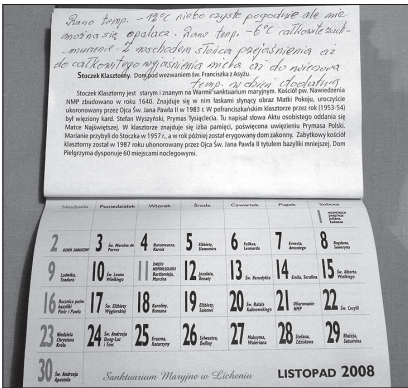 Rano temp. -12°C niebo czyste pogodnie ale nie
można się opalać. Rano temp. -6°C całkowite zach-
murzenie. Z wschodem słońca przejaśnienia aż
do całkowitego wyjaśnienia nieba aż do wieczora
temp. w dzień dodatnia
Stoczek Klasztorny. Dom pod wezwaniem św. Franciszka z Asyżu.
Stoczek Klasztorny jest starym i znanym na Warmii sanktuarium maryjnym. Kościół pw. Nawiedzenia
NMP zbudowano w roku 1640. Znajduje się w nim łaskami słynący obraz Matki Pokoju, uroczyście
ukoronowany przez Ojca Św. Jana Pawła II w 1983 r. W pofranciszkańskim klasztorze przez rok (1953-54)
był więziony kard. Stefan Wyszyński, Prymas Tysiąclecia. Tu napisał słowa Aktu osobistego oddania się
Matce Najświętszej. W klasztorze znajduje się izba pamięci, poświęcona uwięzieniu Prymasa Polski.
Marianie przybyli do Stoczka w 1957 r., a w rok później został erygowany dom zakonny. Zabytkowy kościół
klasztorny został w 1987 roku uhonorowany przez Ojca Św. Jana Pawła II tytułem bazyliki mniejszej. Dom
Pielgrzyma dysponuje 60 miejscami noclegowymi.
Niedziela Poniedziałek Wtorek Środa Czwartek Piątek Sobota
1 WSZYSTKICH ŚWIĘTYCH Juliana, Łukasza
2 DZIEŃ ZADUSZNY 3 Św. Marcina de Porres 4 Św. Karola 5 Elżbiety, Sławomira 6 Feliksa, Leonarda 7 Ernesta, Antoniego 8 Bogdana, Seweryna
9 Ludwika, Teodora 10 Św. Leona Wielkiego 11 ŚWIĘTO NIEPODLEGŁOŚCI Bartłomieja, Marcina 12 Jozafata, Renaty 13 Św. Benedykta 14 Emila, Serafina 15 Św. Alberta Wielkiego
16 Rocznica pośw. bazyliki Piotra i Pawła 17 Św. Elżbiety Węgierskiej 18 Karoliny, Romana 19 Elżbiety, Salomei 20 Św. Rafała Kalinowskiego 21 Ofiarowanie NMP 22 Św. Cecylii
23 Niedziela Chrystusa Króla 24 Św. Andrzeja Dung-Lac i Tow. 25 Erazma, Katarzyny 26 Sylwestra, Delfiny 27 Maksyma, Waleriana 28 Stefana, Zdzisława 29 Błażeja, Saturnina
30 Św. Andrzeja Apostoła
Sanktuarium Maryjne w Licheniu LISTOPAD 2008